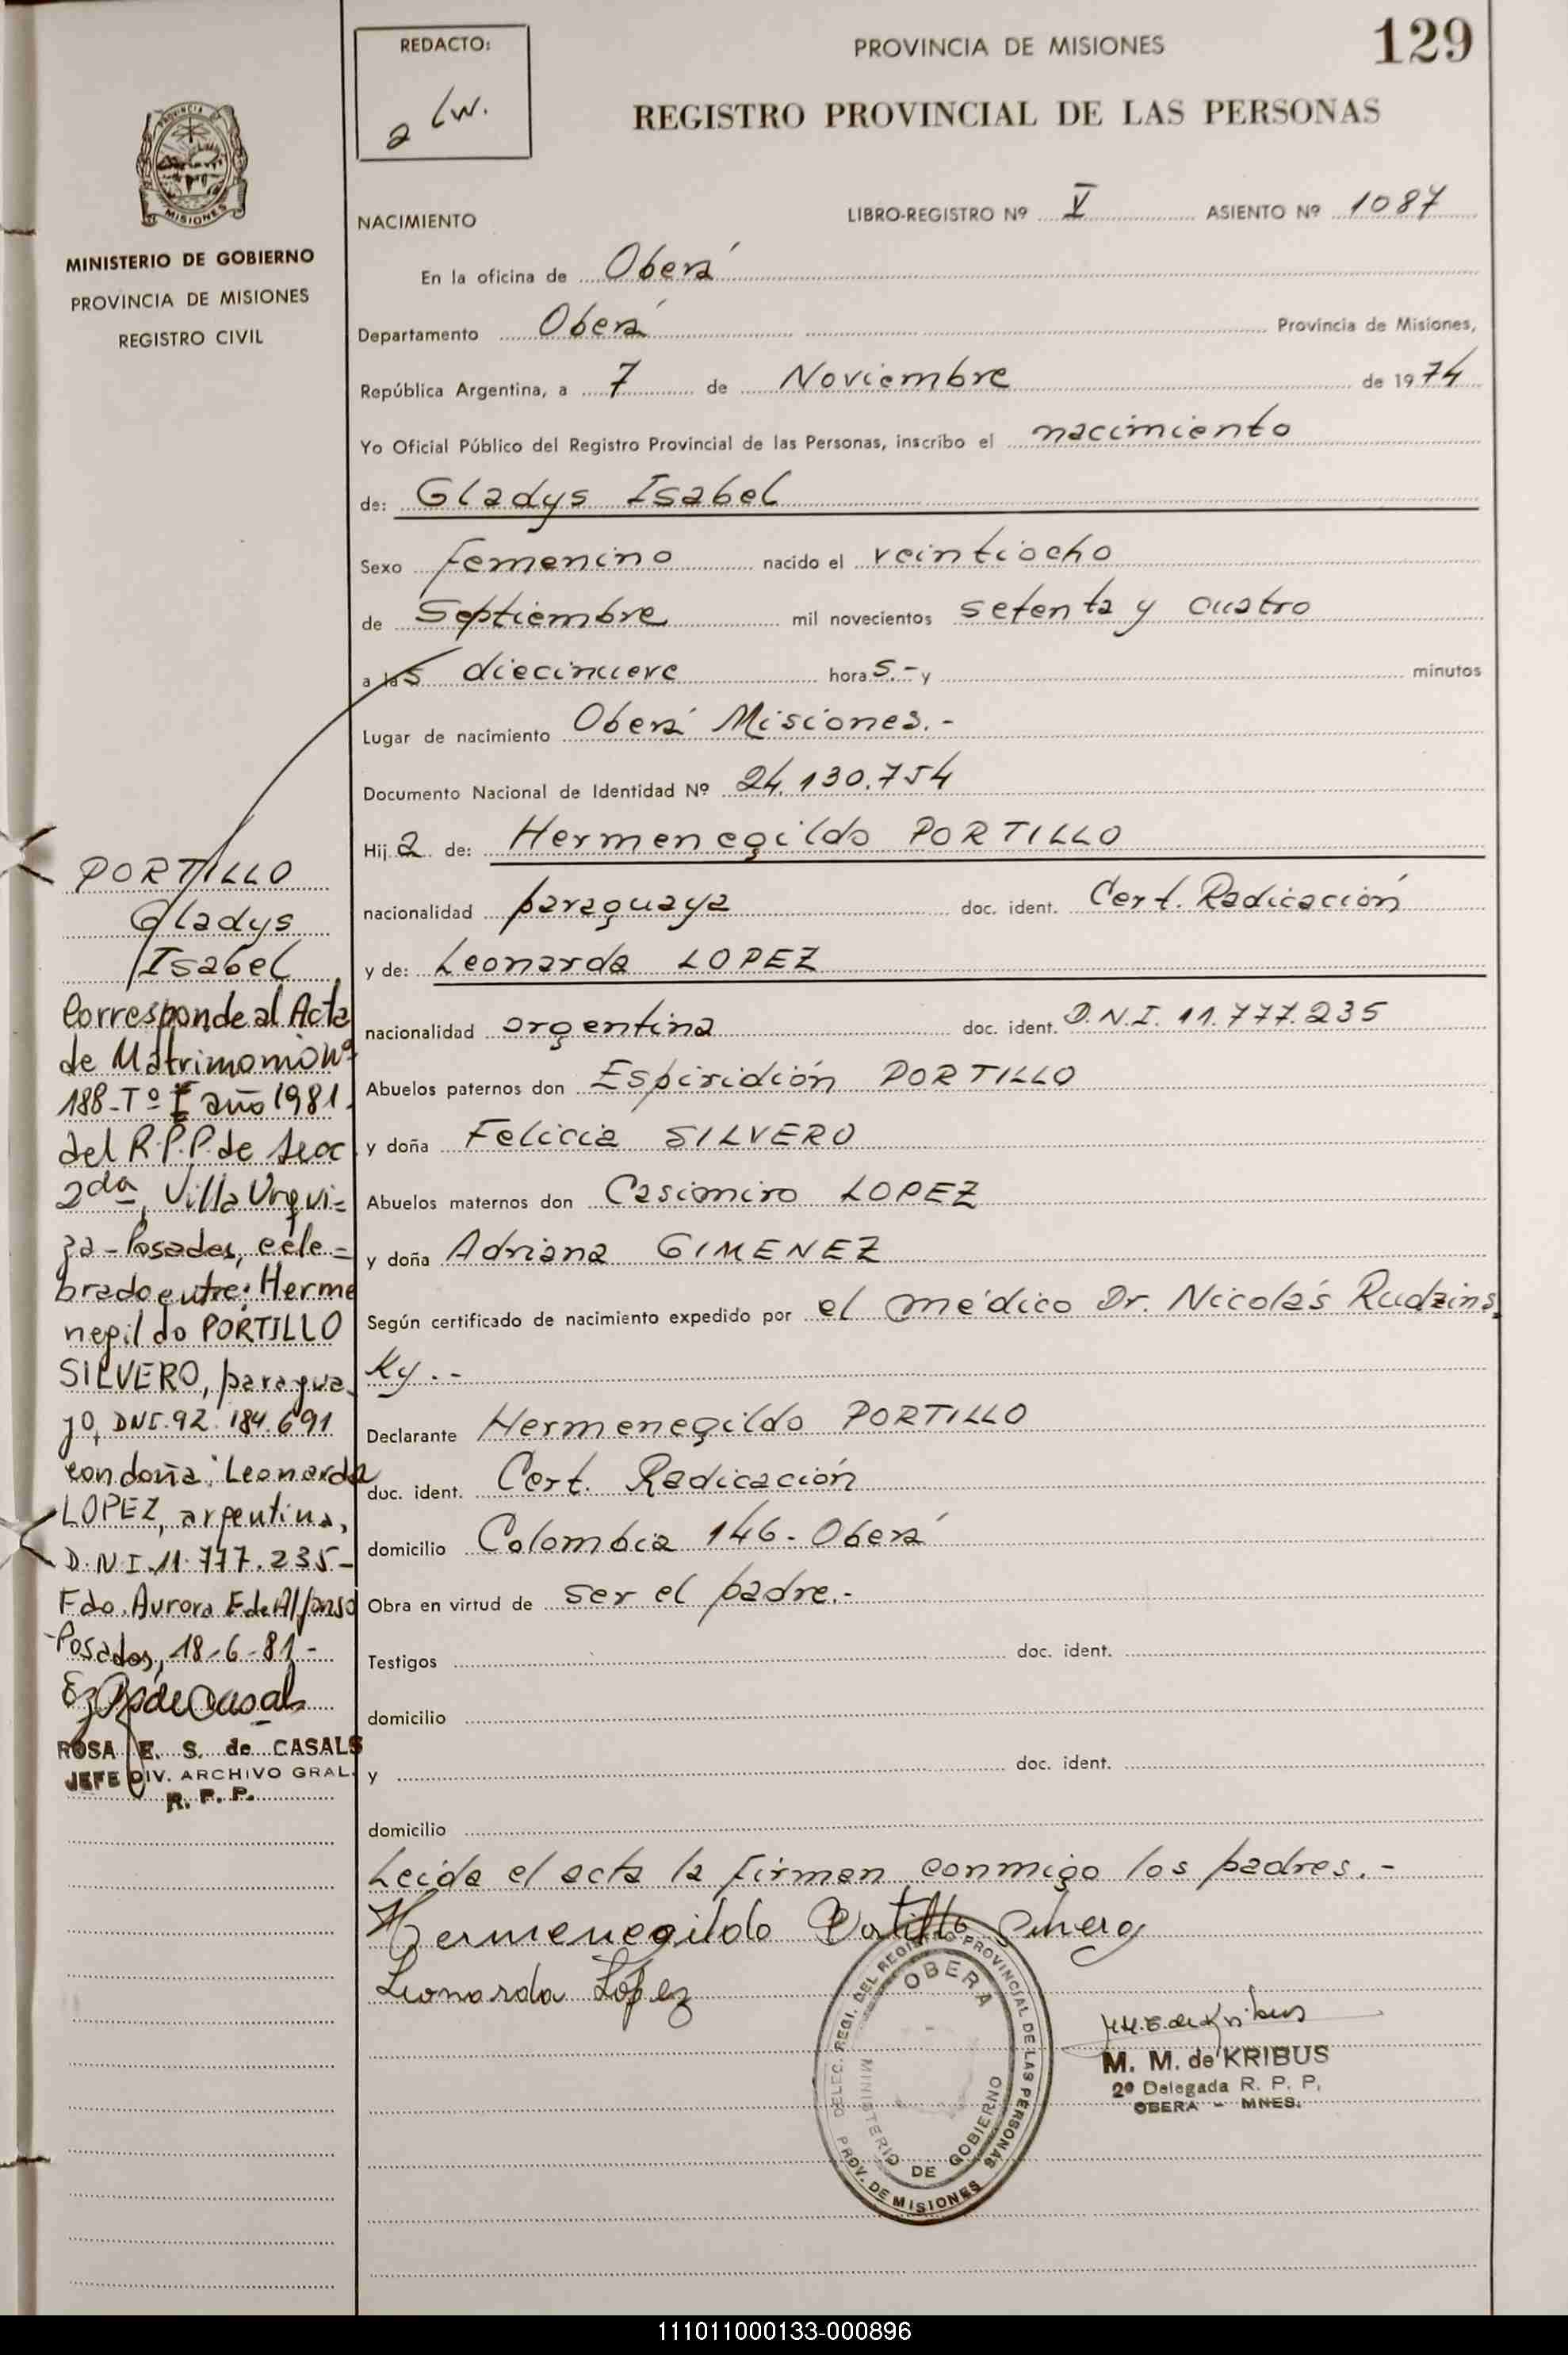 129
REDACTO:
PROVINCIA DE MISIONES
REGISTRO PROVINCIAL DE LAS PERSONAS
MISIONES
MINISTERIO DE GOBIERNO
PROVINCIA DE MISIONES
REGISTRO CIVIL
NACIMIENTO
LIBRO-REGISTRO Nº V ASIENTO Nº 1087
En la oficina de Oberá
Departamento Oberá Provincia de Misiones,
República Argentina, a 7 de Noviembre de 1974
Yo Oficial Público del Registro Provincial de las Personas, inscribo el nacimiento
de: Gladys Isabel
Sexo femenino nacido el veintiocho
de Septiembre mil novecientos setenta y cuatro
a las diecinueve horas.- y minutos
Lugar de nacimiento Oberá Misiones.-
Documento Nacional de Identidad Nº 24.130.754
Hija de: Hermenegildo PORTILLO
nacionalidad paraguaya doc. ident. Cert. Radicación
y de: Leonarda LOPEZ
nacionalidad argentina doc. ident. D.N.I. 11.777.235
Abuelos paternos don Espiridión PORTILLO
y doña Felicia SILVERO
Abuelos maternos don Casimiro LOPEZ
y doña Adriana GIMENEZ
Según certificado de nacimiento expedido por el médico Dr. Nicolás Rudzins
ky.-
Declarante Hermenegildo PORTILLO
doc. ident. Cert. Radicación
domicilio Colombia 146- Oberá
Obra en virtud de ser el padre.-
Testigos doc. ident.
domicilio
y doc. ident.
domicilio
Leida el acta la firman conmigo los padres.-
Hermenegildo Portillo Silvero
Leonarda López
DELEC. REGI. DEL REGISTRO PROVINCIAL DE LAS PERSONAS
OBERA
MINISTERIO DE GOBIERNO
PROV. DE MISIONES
M. M. de KRIBUS
2ª Delegada R. P. P.
OBERA - MNES.
PORTILLO
Gladys
Isabel
Corresponde al Acta
de Matrimonio nº
188-Tº I año 1981.
del R.P.P. de Secc
2da, Villa Urqui=
za-Posadas, cele=
brado entre: Herme
negildo PORTILLO
SILVERO, paragua
yo, DNI.92.184.691
con doña: Leonarda
LOPEZ, argentina,
D.N.I.11.777.235-
Fdo. Aurora E de Alfonso
-Posadas, 18-6-81-
ROSA E. S. de CASALS
JEFE DIV. ARCHIVO GRAL.
R. P. P.
111011000133-000896